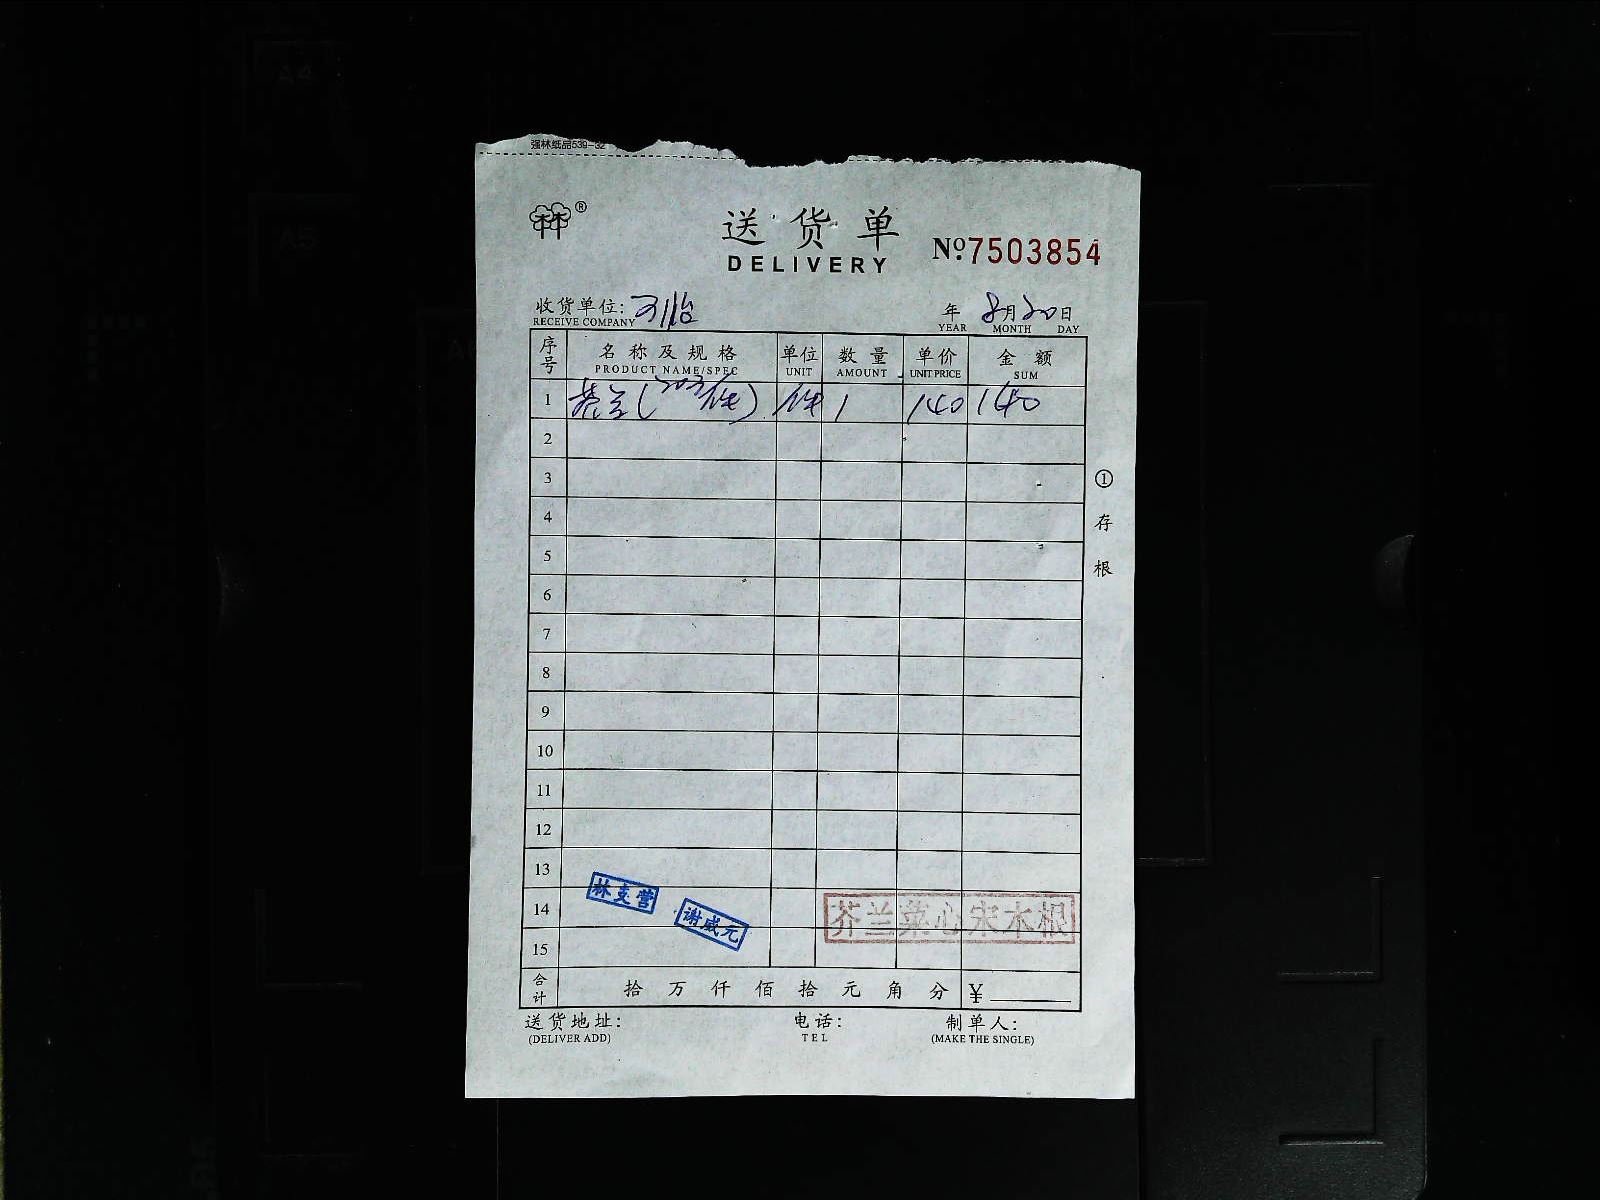 强林纸品539-32
林®
送货单
DELIVERY
Nº7503854
收货单位:
RECEIVE COMPANY
年 8月20日
YEAR MONTH DAY
序号 名称及规格 单位 数量 单价 金额
PRODUCT NAME/SPEC UNIT AMOUNT UNIT PRICE SUM
1 芥兰(20斤/件) 件 1 140 140
2
3
4
5
6
7
8
9
10
11
12
13
14
15
①存根
林支营
谢威元
芥兰菜心宋木根
合计 拾万仟佰拾元角分 ¥
送货地址: 电话: 制单人:
(DELIVER ADD) TEL (MAKE THE SINGLE)